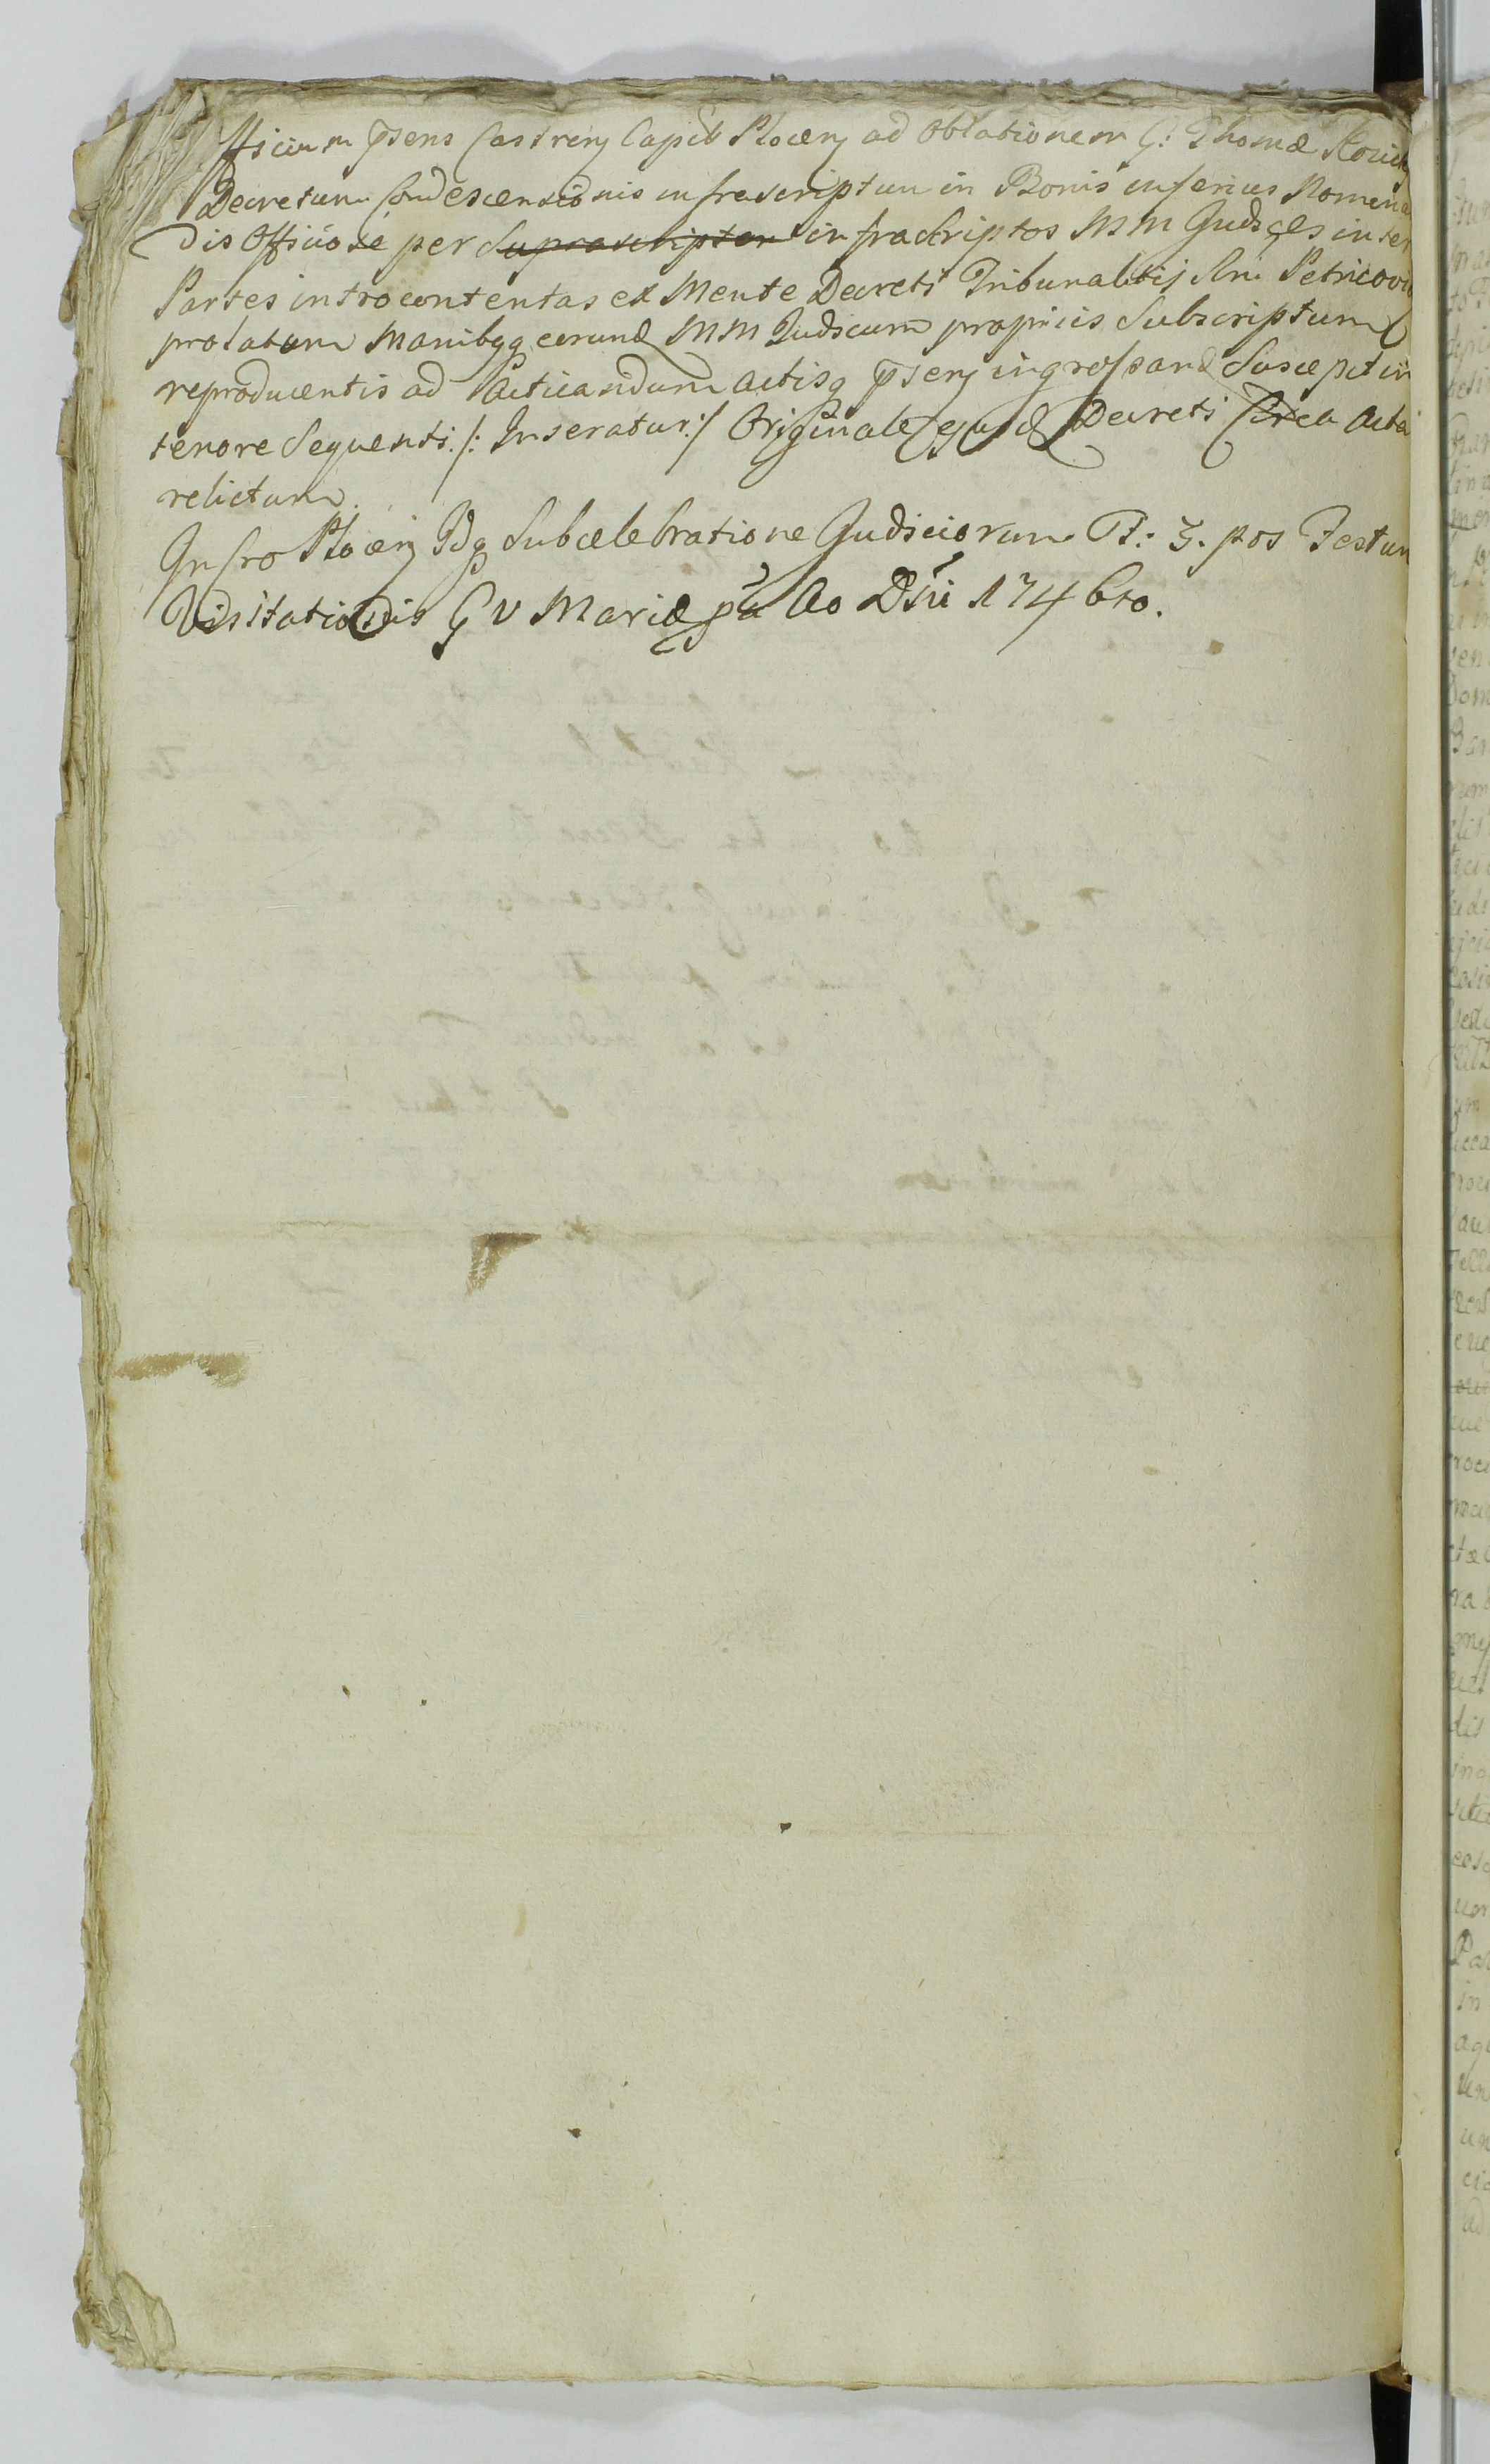 fficium psens Castren Capit Plocen ad Oblationem G: Thomæ
Decretum Condescensionis infrascriptum in Bonis inferius Nomina
dis Officiose per Suprascriptos infrascriptos MM Judices inter
Partes introcontentas ex Mente Decreti Tribunalitij Rni Petricovi
prolatum Manibqq eorund MM Judicum proprijs Subscriptum
reproducentis ad Acticandum actisq psen ingrossand Suscepit in
tenore Sequenti /: Inseratur :/ Originale ejusd Decreti Circa Acta
relictum.
In Cro Plocen Idq Subcelebratione Judiciorum F: 3. pos Festum
Visitationis G V Mariæ pa Ao Dni 1746to.